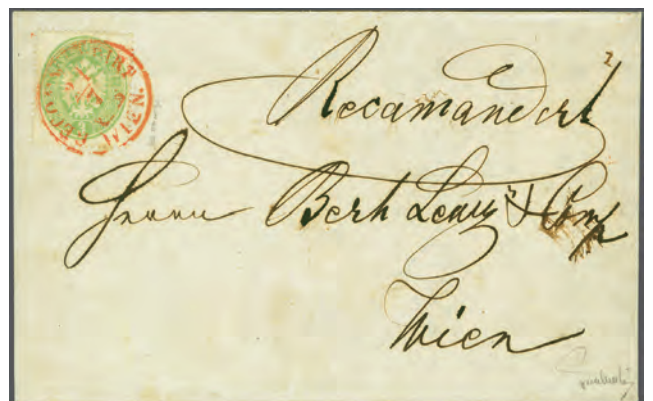 RECOMMANDIRT WIEN.
Recamandirt
Herrn Berh & Comp
Wien